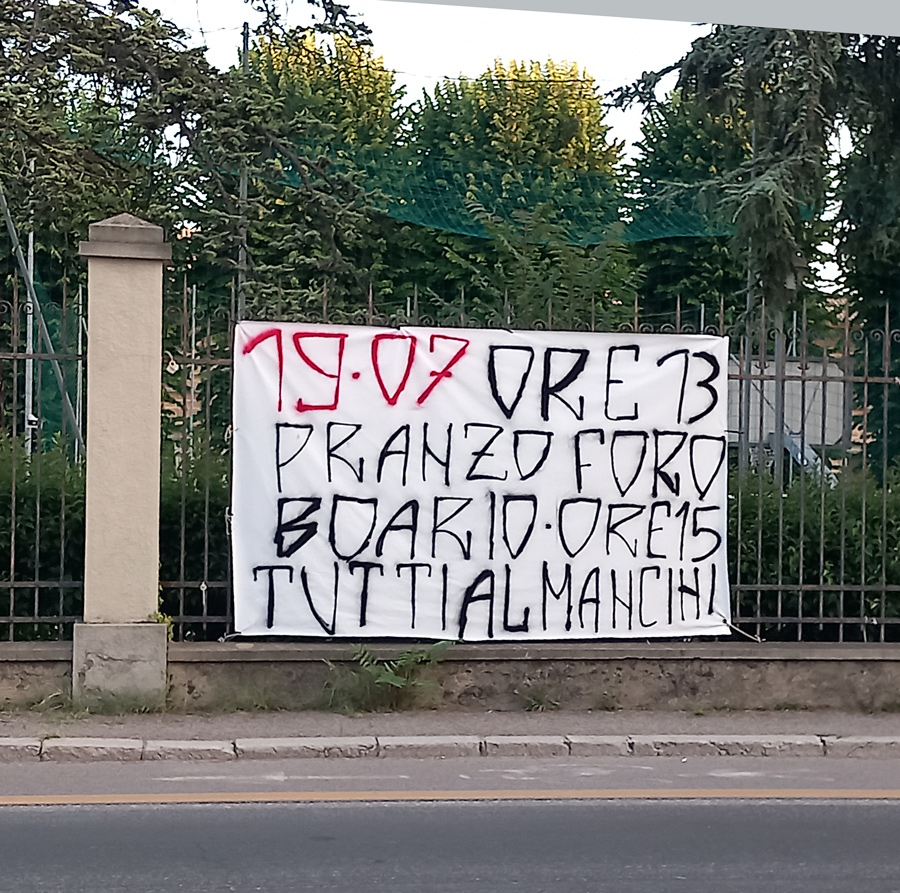 19·07 ORE 13
PRANZO FORO
BOARIO·ORE15
TUTTI AL MANCINI